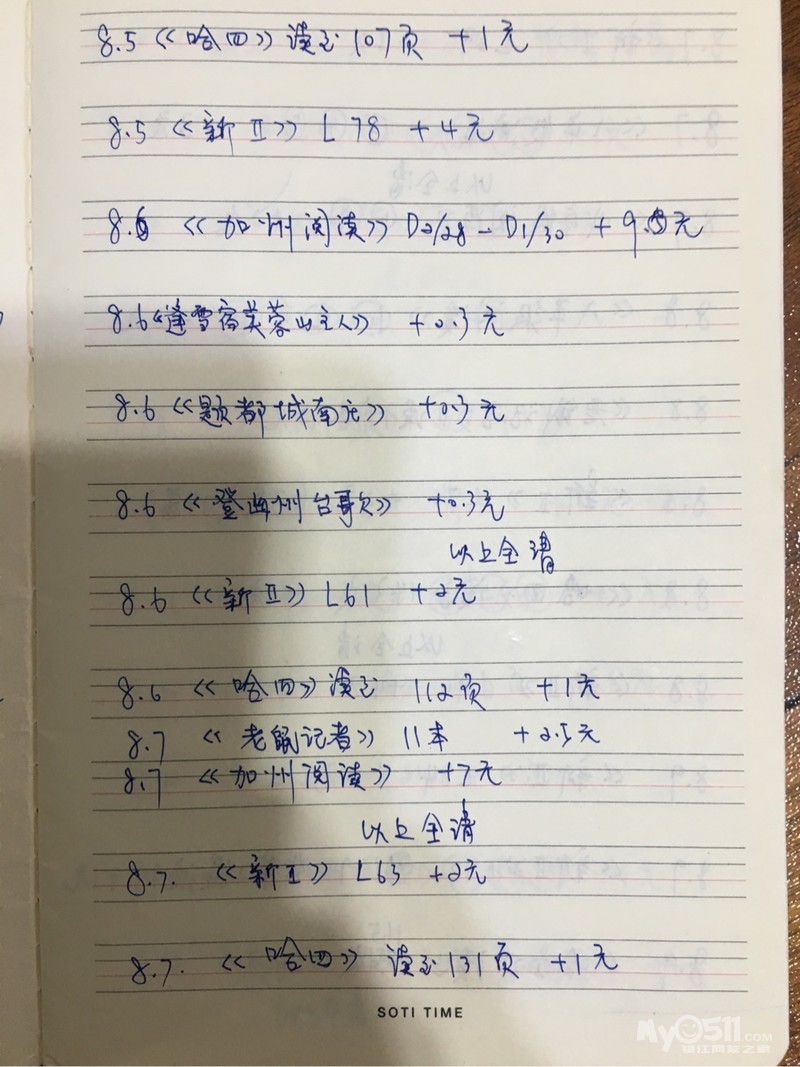 8.5 《哈四》读至107页 +1元
8.5 《新Ⅱ》L78 +4元
8.6 《加州阅读》D2/28-D1/30 +9.5元
8.6《逢雪宿芙蓉山主人》 +0.3元
8.6 《题都城南庄》 +0.3元
8.6 《登幽州台歌》 +0.3元
以上全清
8.6 《新Ⅱ》L61 +2元
8.6 《哈四》读至 112页 +1元
8.7 《老鼠记者》11本 +2.5元
8.7 《加州阅读》 +7元
以上全清
8.7. 《新Ⅱ》L63 +2元
8.7. 《哈四》 读至131页 +1元
SOTI TIME
My0511.COM